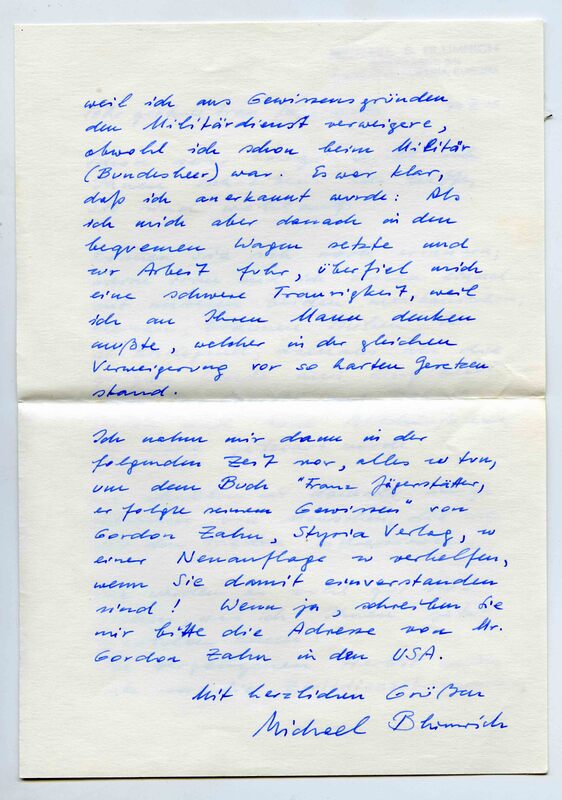 weil ich aus Gewissensgründen
den Militärdienst verweigere,
obwohl ich schon beim Militär
(Bundesheer) war. Es war klar,
daß ich anerkannt wurde: Als
ich mich aber danach in den
bequemen Wagen setzte und
zur Arbeit fuhr, überfiel mich
eine schwere Traurigkeit, weil
ich an Ihren Mann denken
mußte, welcher in der gleichen
Verweigerung vor so harten Gesetzen
stand.
Ich nahm mir dann in der
folgenden Zeit vor, alles zu tun,
um dem Buch "Franz Jägerstätter,
er folgte seinem Gewissen" von
Gordon Zahn, Styria Verlag, zu
einer Neuauflage zu verhelfen,
wenn Sie damit einverstanden
sind! Wenn ja, schreiben Sie
mir bitte die Adresse von Mr.
Gordon Zahn in den USA.
Mit herzlichen Grüßen
Michael Blümrich